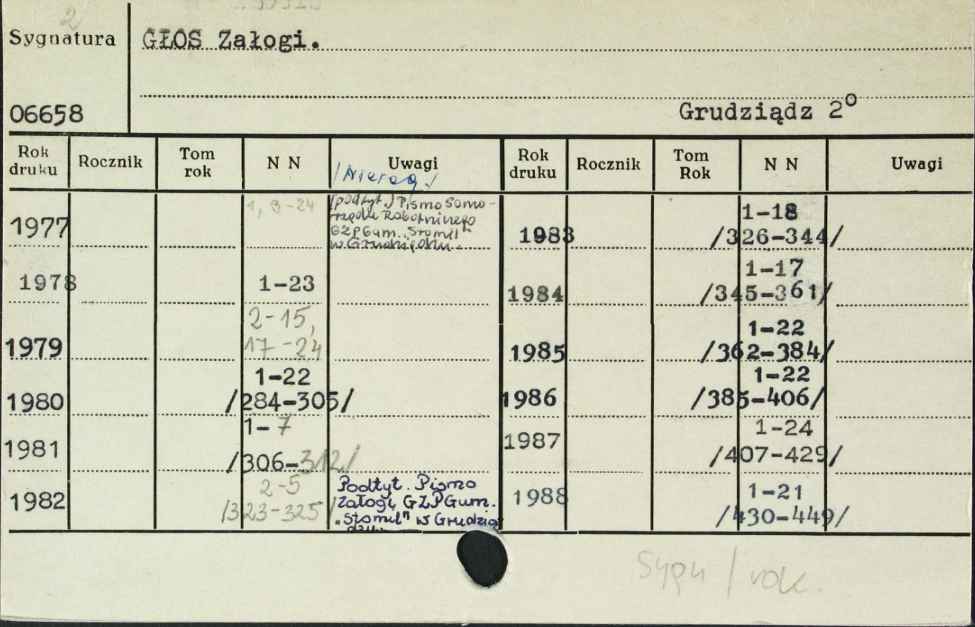 2
Sygnatura GŁOS Załogi.
06658 Grudziądz 2º
Rok druku Rocznik Tom rok N N Uwagi Rok druku Rocznik Tom Rok N N Uwagi
/Niereg./
1977 1, 3-24 /podtyt./ Pismo Samo-
rządu Robotniczego
GZPGum. "Stomil"
w Grudziądzu.
1978 1-23
1979 2-15,
17-24
1980 1-22
/284-305/
1981 1-7
/306-312/
1982 2-5
/323-325/
Podtyt. Pismo
Załogi GZPGum.
"Stomil" w Grudzią
1983 1-18
/326-344/
1984 1-17
/345-361/
1985 1-22
/362-384/
1986 1-22
/385-406/
1987 1-24
/407-429/
1988 1-21
/430-449/
Sygn / rok.